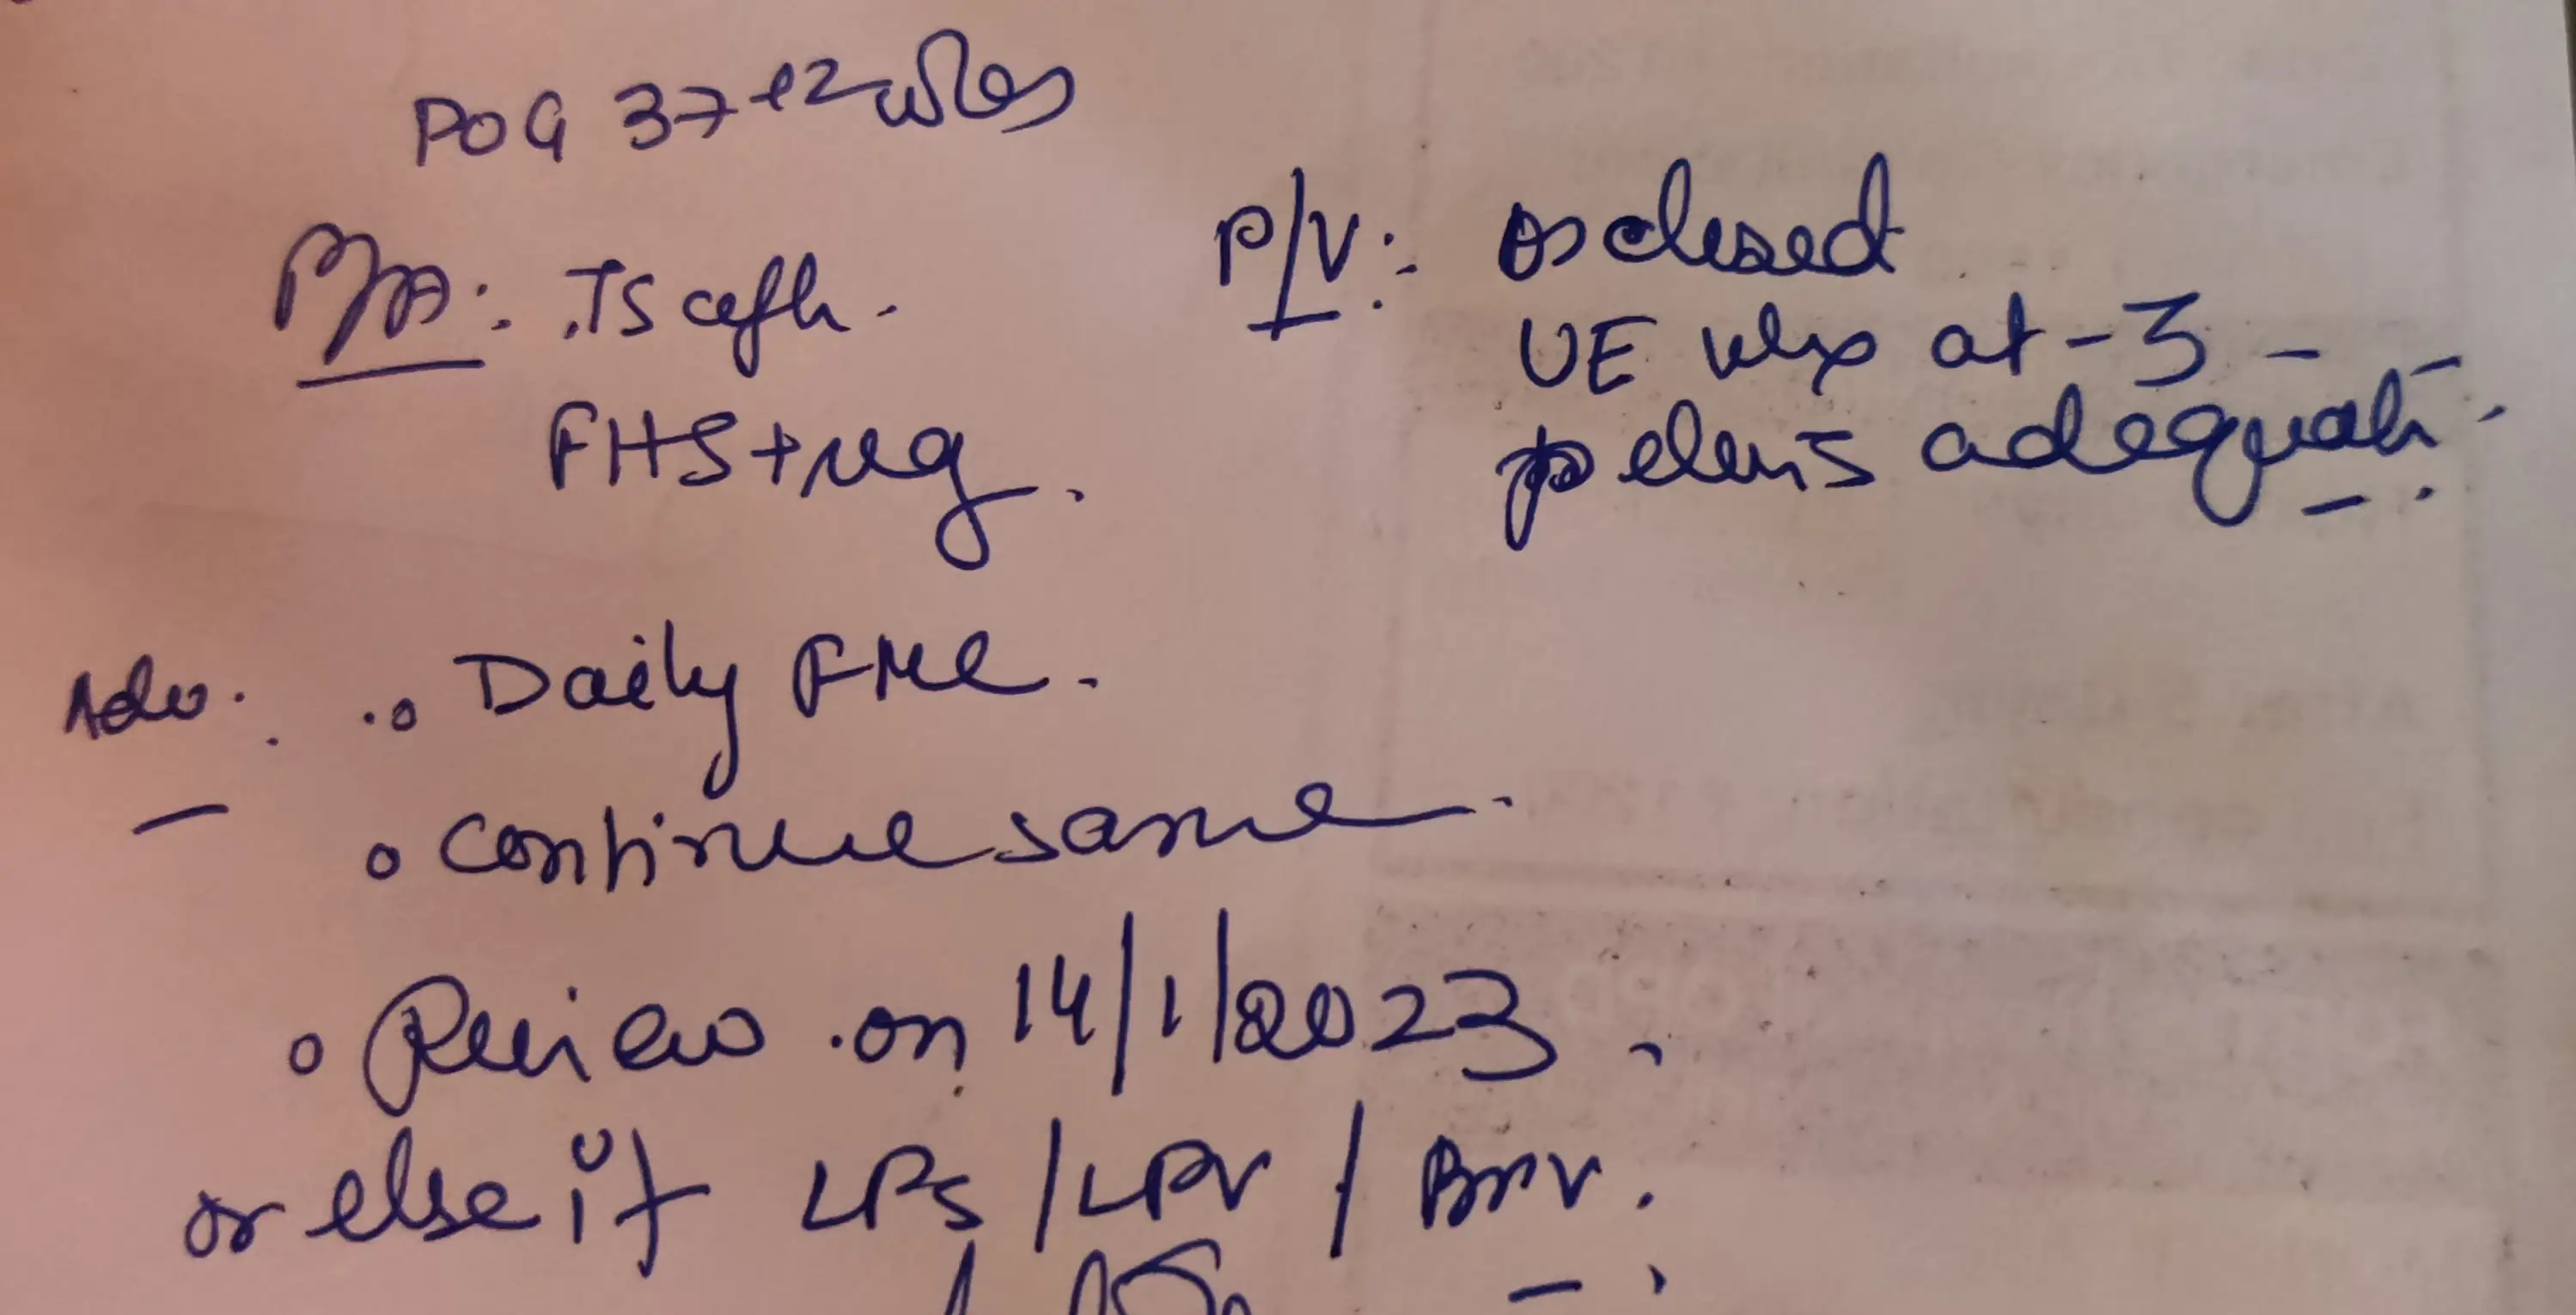 POG 37+2 wks
P/A: TS ceph.
FHS+reg.
P/V: os closed
UE vlx at -3
pelvis adequate.
Adv: Daily FMC.
continue same.
Review on 14/1/2023.
or else if LPs / LPV / BPV.